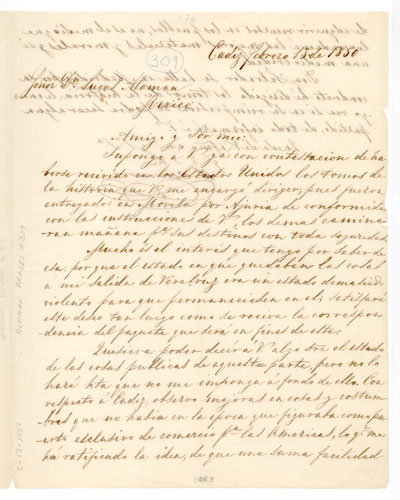 309
Cadiz febrero 13 de 1850
Señor Dn. Lucas Alaman
Mexico
Amigo y Sor. mio:
Supongo a V. ya con contestacion de ha-
berse recivido en los Estados Unidos los tomos de
la historia que V. me encargó dirigir, pues fueron
entregados en por Ajuria de conformidad
con las instrucciones de V. los demas camina-
ran mañana pa. sus destinos con toda seguridad.
Mucho es el interés que tengo por saber de
esa, por que el estado en que quedaban las cosas
a mi salida de Veracruz era un estado demasiado
violento para que permaneciesen en el; satisfaré
este deseo tan luego como se reciva la correspon-
dencia del paquete que será en fines de este.
Quisiera poder decir á V. algo sre. el estado
de las cosas publicas de aquesta parte, pero no lo
haré hta. que no me imponga á fondo de ello. Con
respecto á Cadiz, observo mejoras en cosas y costum-
bres que no habia en la época que figuraba como pu-
erto exclusivo de comercio pa. las America, lo qe. me
ha ratificado la idea, de que una suma facilidad